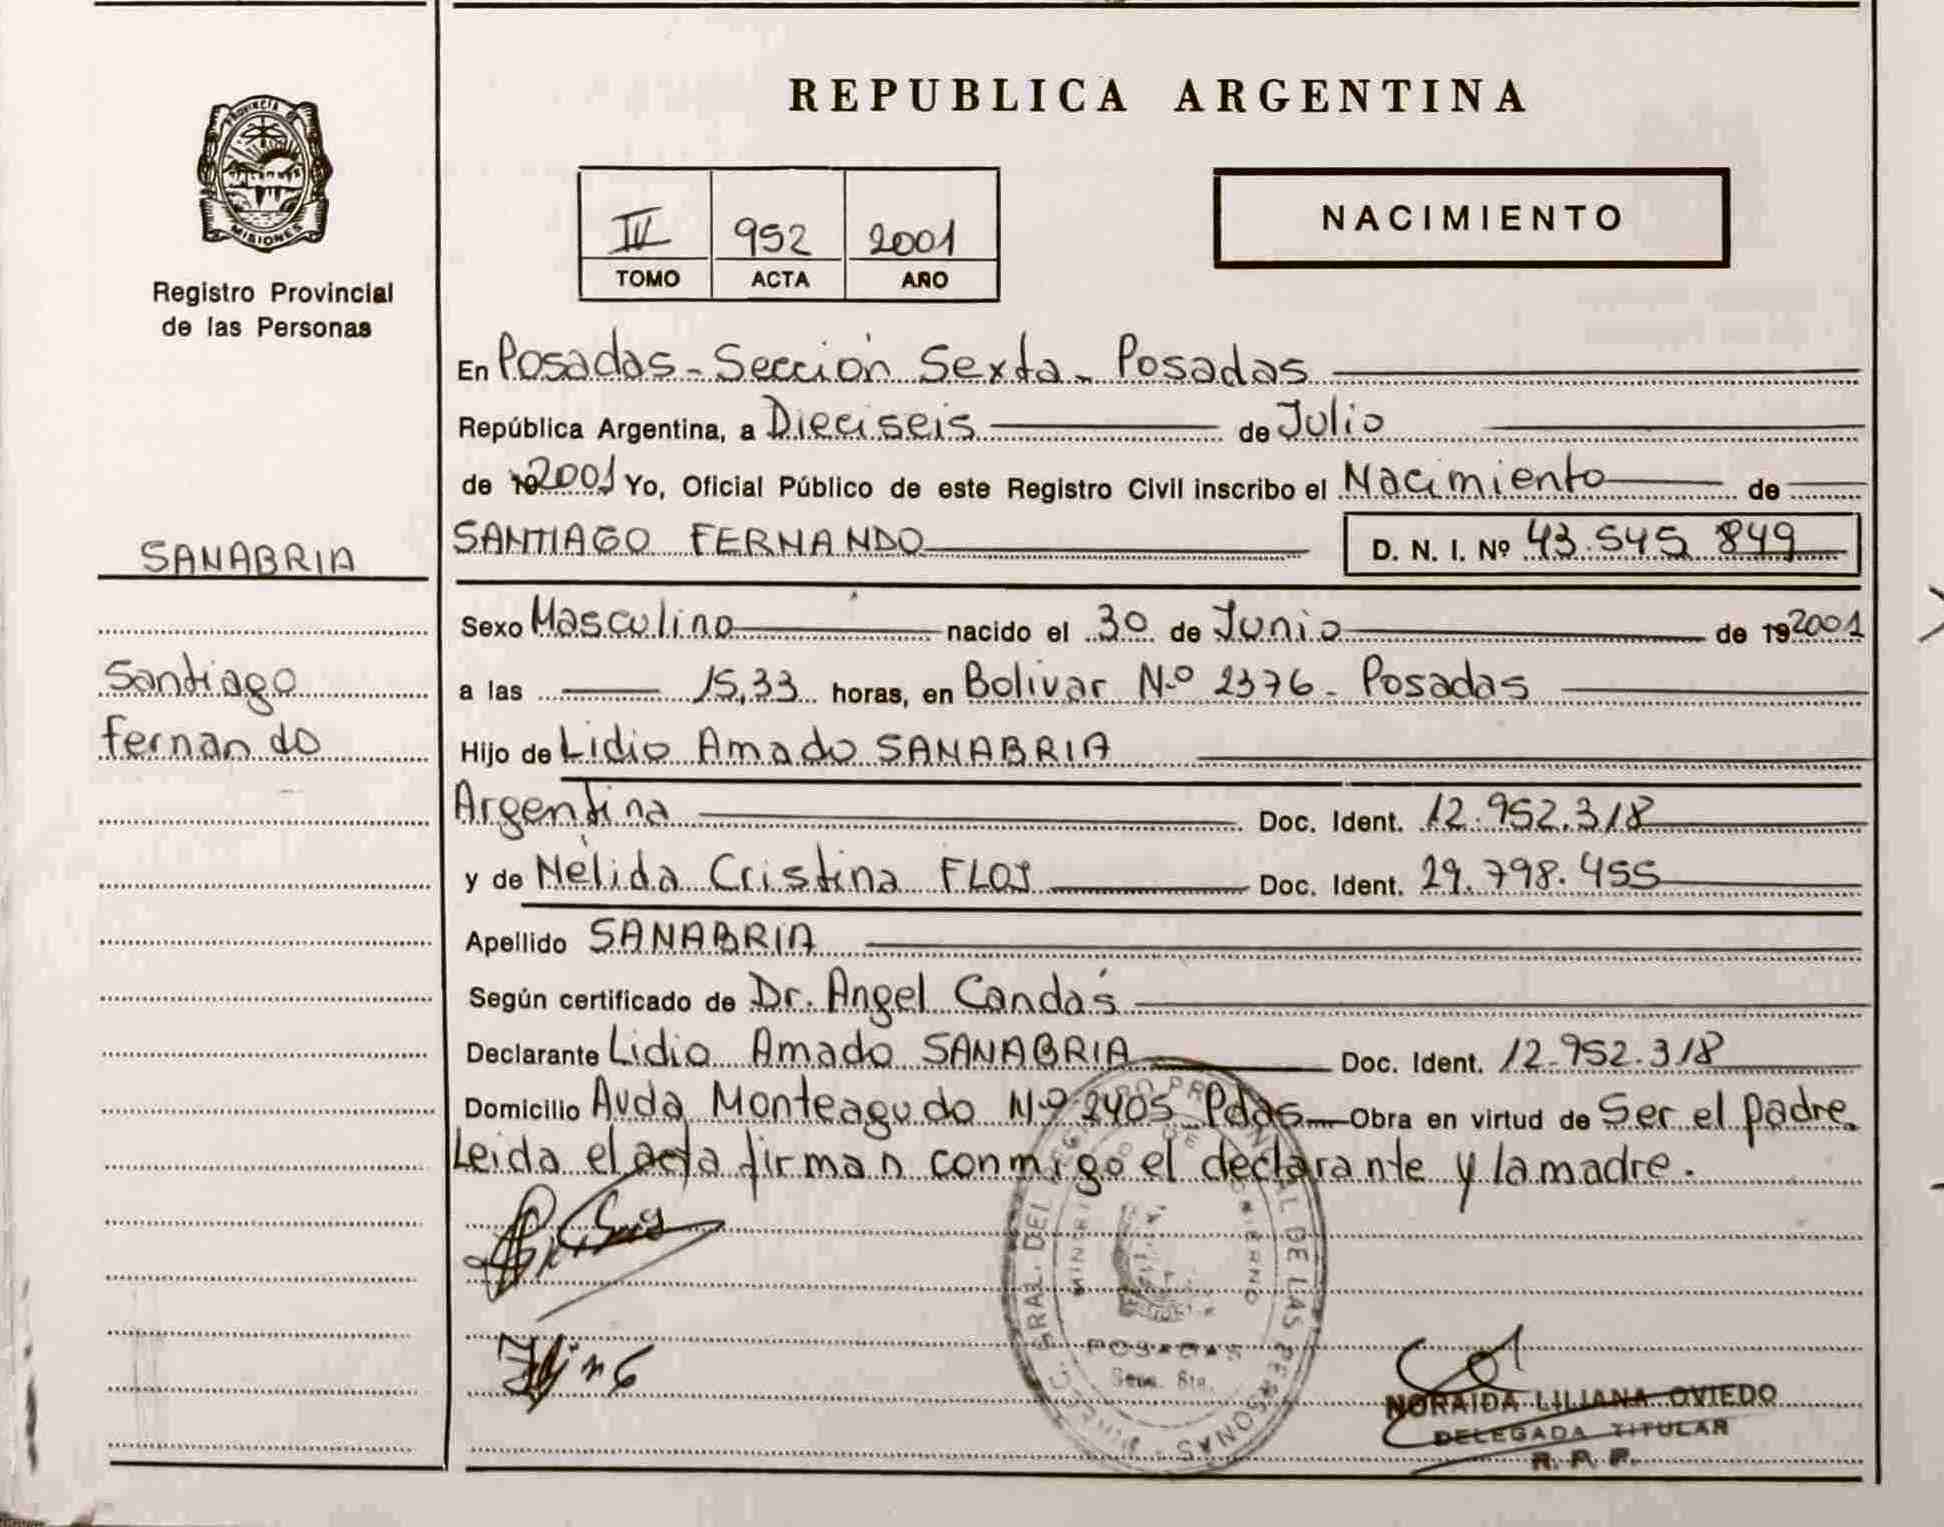 PROVINCIA DE
MISIONES
Registro Provincial
de las Personas
SANABRIA
Santiago
Fernando
REPUBLICA ARGENTINA
IV 952 2001
TOMO ACTA AÑO
NACIMIENTO
En Posadas - Sección Sexta - Posadas
República Argentina, a Dieciseis de Julio
de 192001 Yo, Oficial Público de este Registro Civil inscribo el Nacimiento de
SANTIAGO FERNANDO D. N. I. Nº 43.545 849
Sexo Masculino nacido el 30 de Junio de 192001
a las 15,33 horas, en Bolivar Nº 2376 - Posadas
Hijo de Lidio Amado SANABRIA
Argentina Doc. Ident. 12.952.318
y de Nélida Cristina FLOS Doc. Ident. 29.798.455
Apellido SANABRIA
Según certificado de Dr. Angel Candás
Declarante Lidio Amado SANABRIA Doc. Ident. 12.952.318
Domicilio Avda Monteagudo Nº 2405 Pdas Obra en virtud de Ser el padre.
Leida el acta firman conmigo el declarante y la madre.
GRAL. DEL REGISTRO PROVINCIAL DE LAS PERSONAS
MINISTERIO DE GOBIERNO
POSADAS
NORAIDA LILIANA OVIEDO
DELEGADA TITULAR
R. P. P.